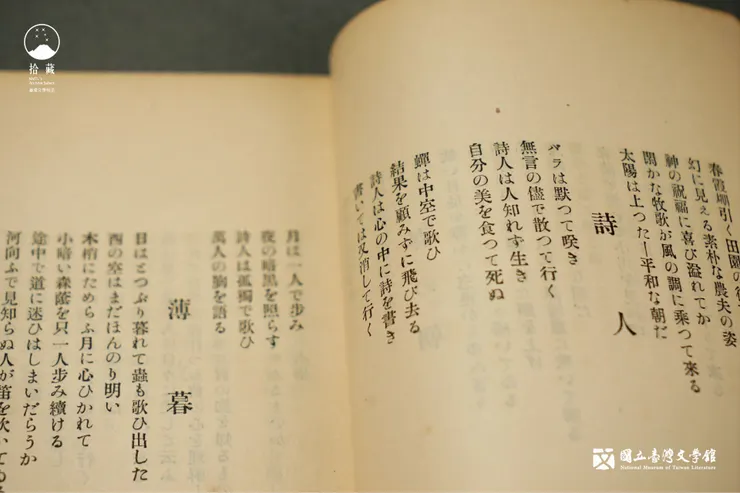 拾藏
春霞棚引く田園の
幻に見える素朴な農夫の姿
神の祝福に喜び溢れてか
閑かな牧歌が風の調に乗つて来る
太陽は上つた―平和な朝だ
詩人
バラは默つて咲き
無言の儘で散つて行く
詩人は人知れず生き
自分の美を食つて死ぬ
蟬は中空で歌ひ
結果を顧みずに飛び去る
詩人は心の中に詩を書き
書いては又消して行く
月は一人で歩み
夜の暗黑を照らす
詩人は孤獨で歌ひ
萬人の胸を語る
薄暮
日はとつぷり暮れて蟲も歌ひ出した
西の空はまだほんのり明い
木梢にためらふ月に心ひかれて
小暗い森蔭を只一人歩み續ける
途中で道に迷ひはしまいだらうか
河向ふで見知らぬ人が笛を吹いてゐる
國立臺灣文學館
National Museum of Taiwan Literature